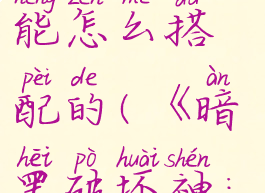 néng zěn me dā
能怎么搭
pèi de àn
配的(《暗
hēi pò huài shén
黑破坏神: